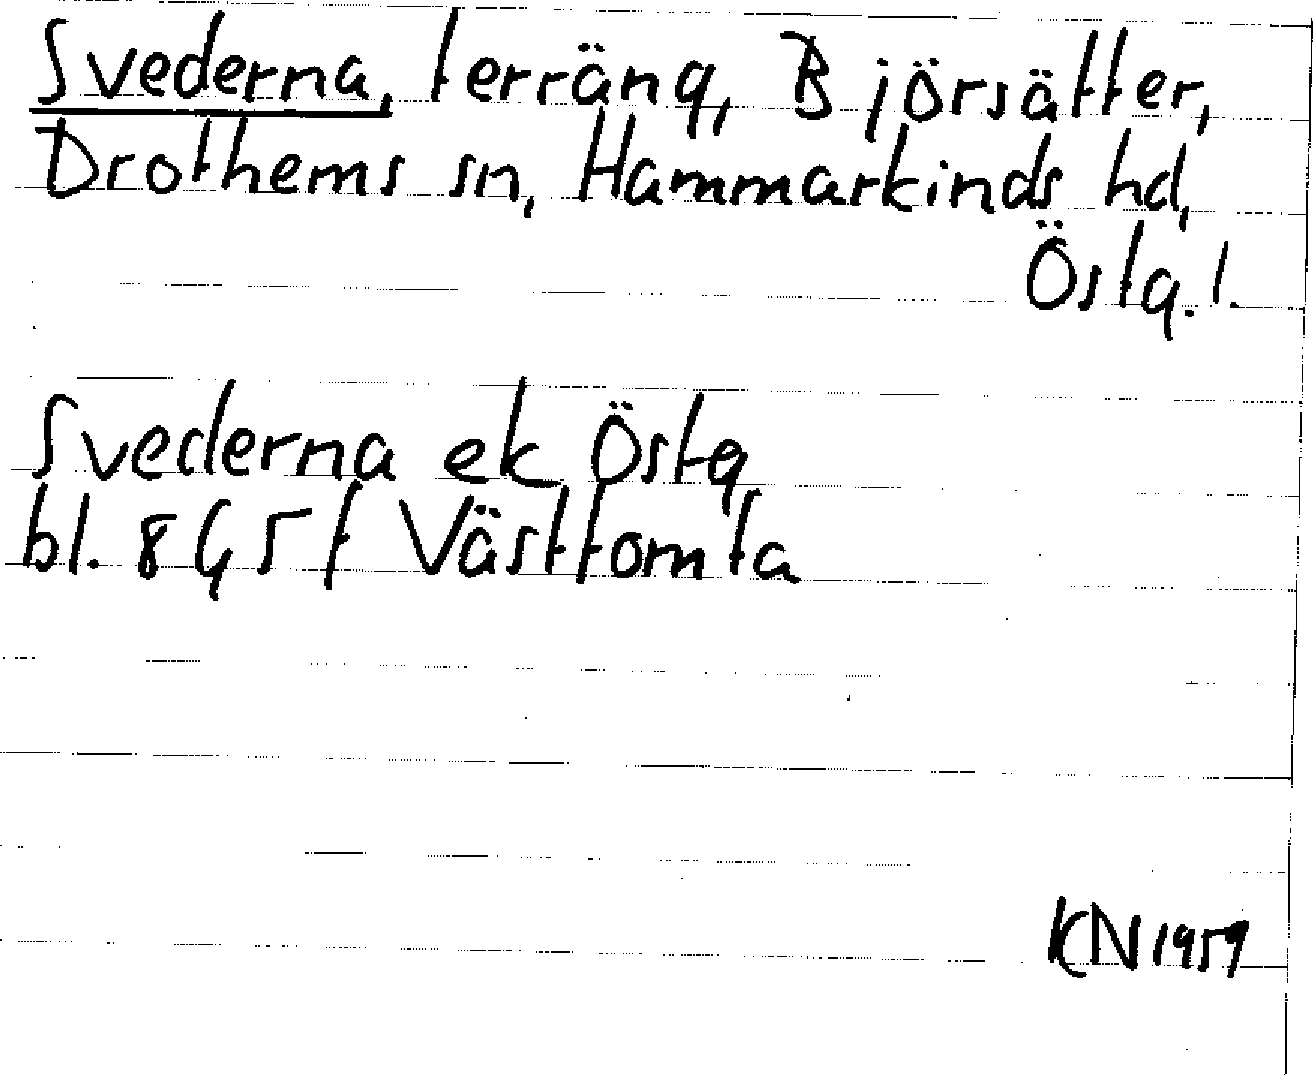 Svederna, terräng, Björsätter,
Drothems sn, Hammarkinds hd,
Östg. l.
Svederna ek Östg
bl. 8G5f Västtomta
KN 1959